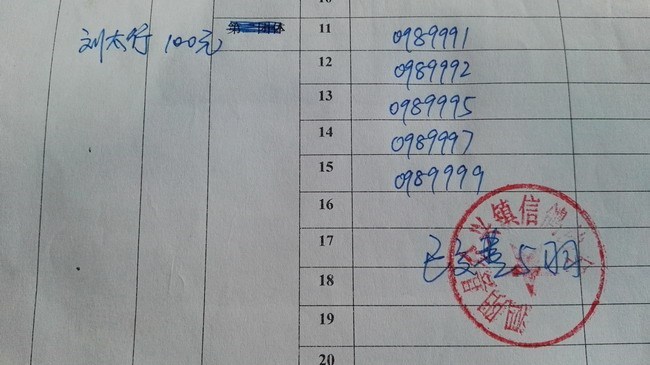 刘太行 100元
11 0989991
12 0989992
13 0989995
14 0989997
15 0989999
16
17
18
19
20
镇信鸽